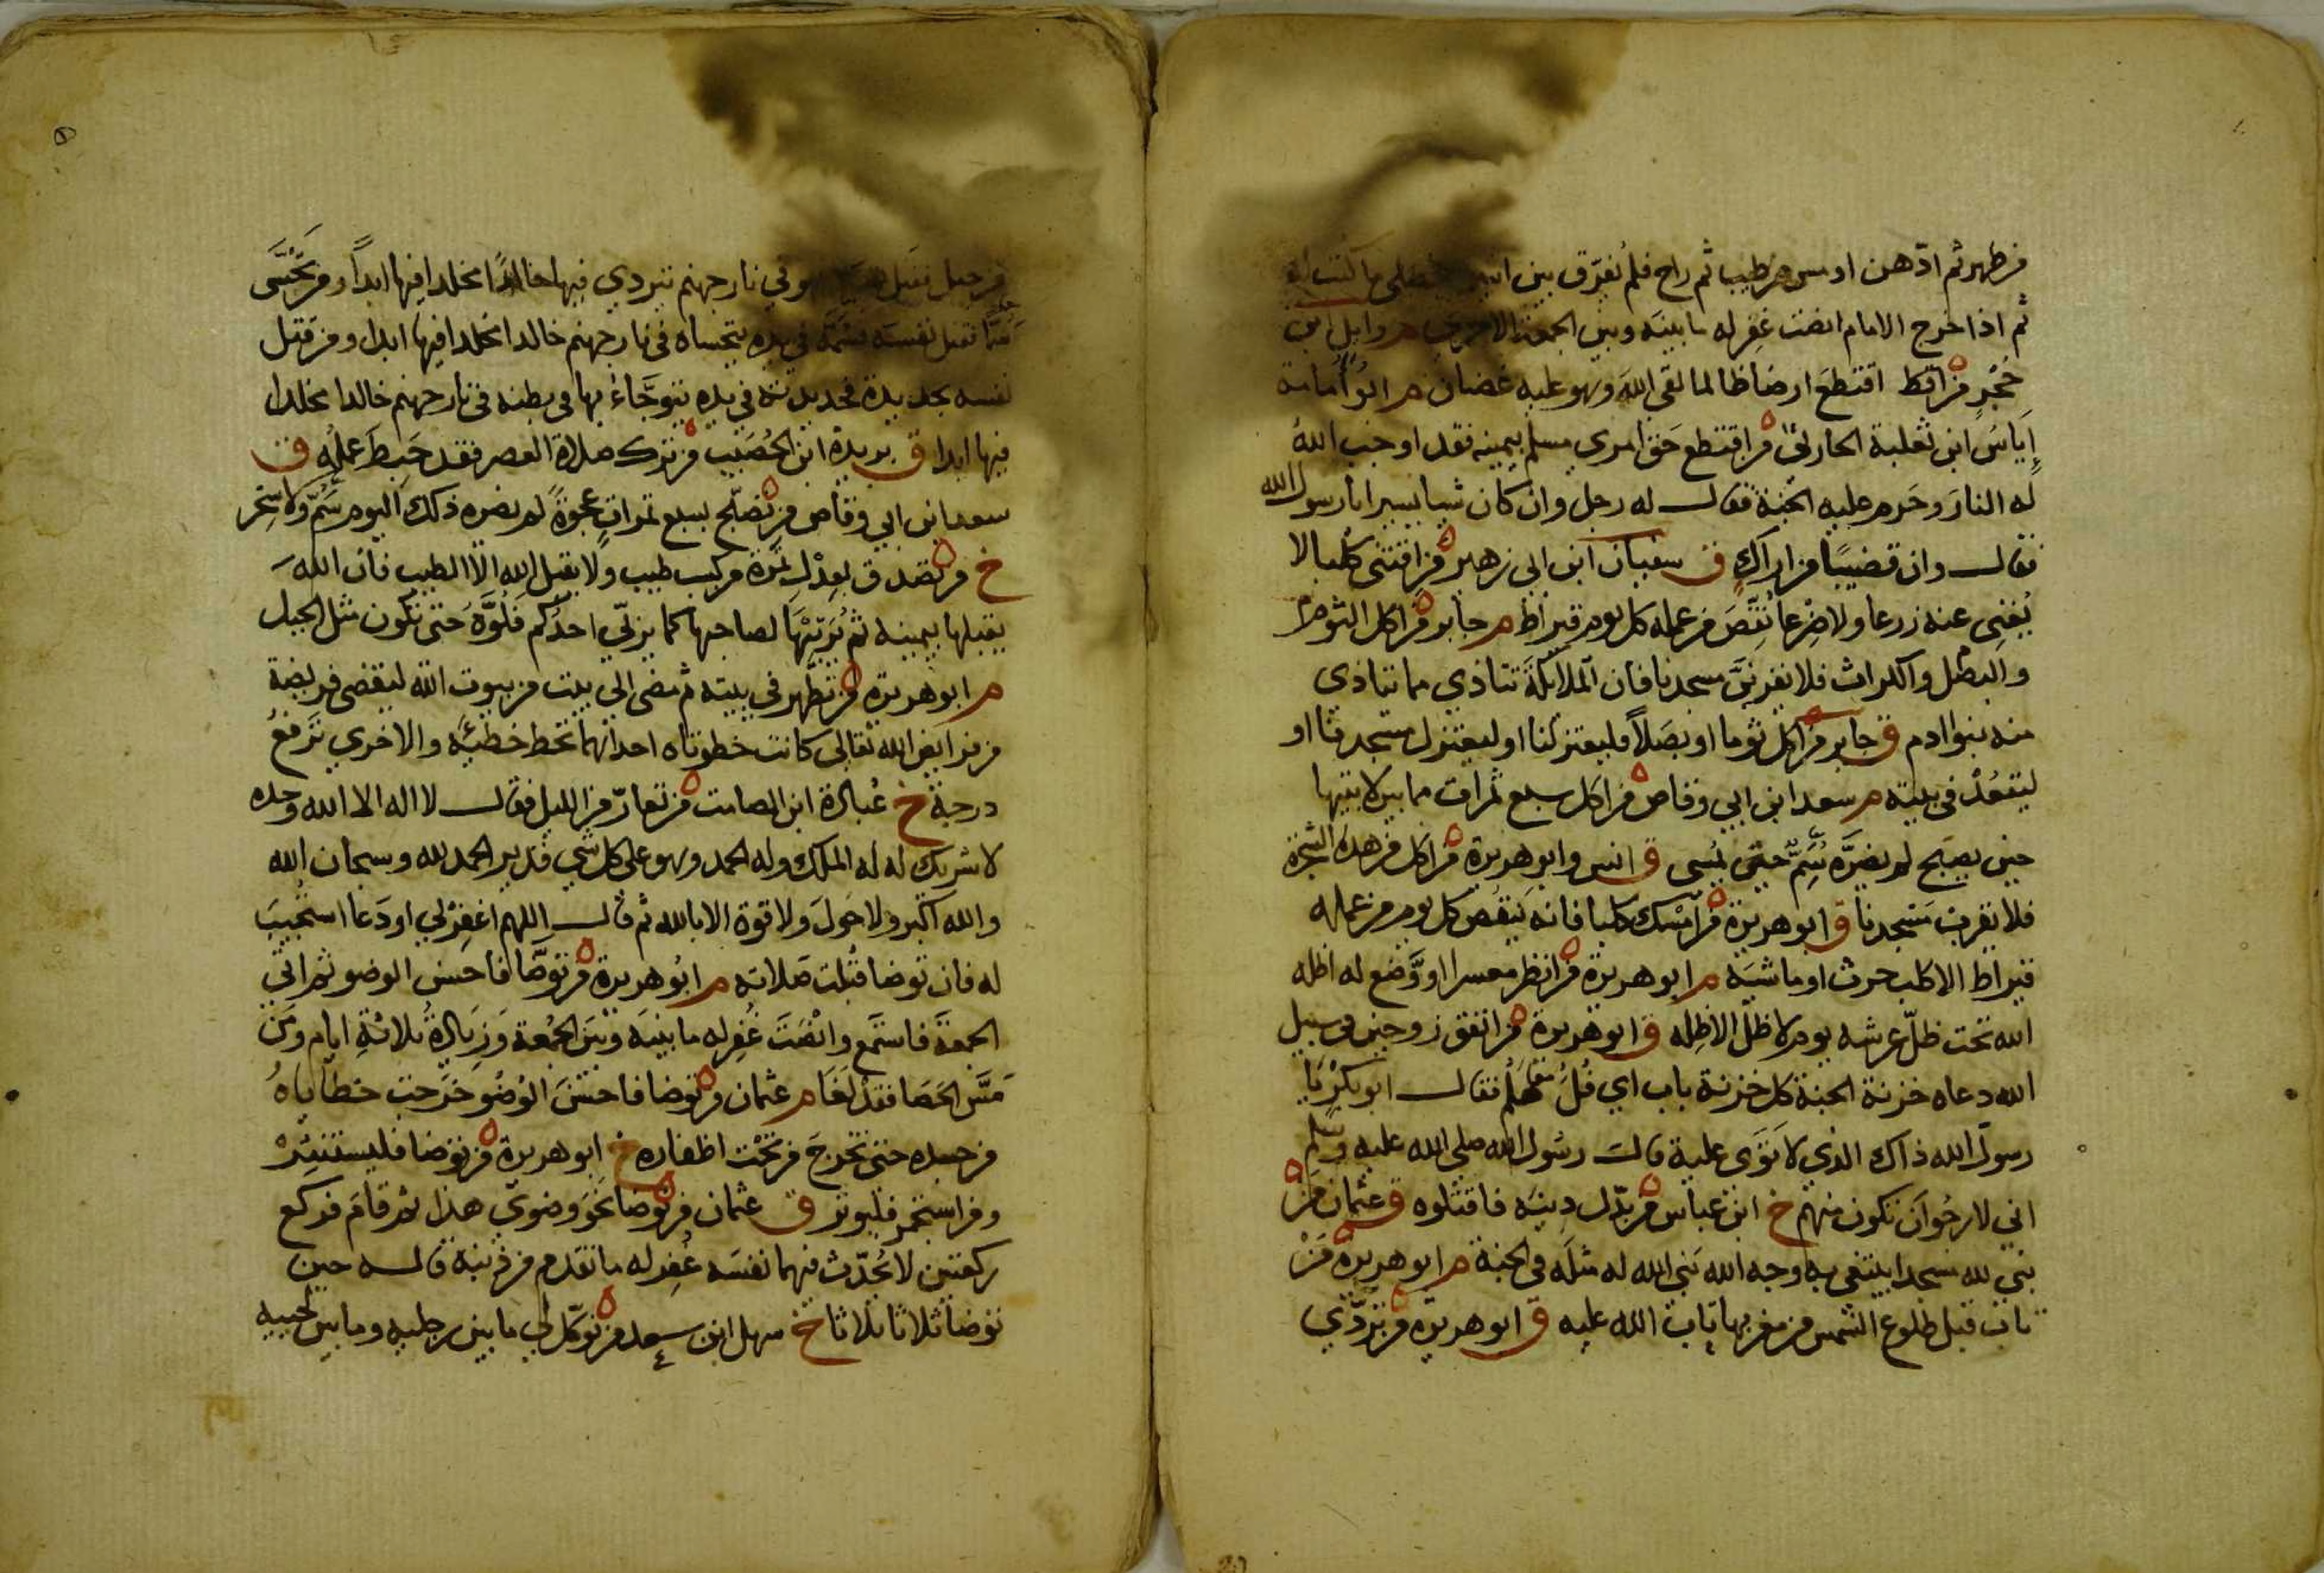 من طهر ثم ادّهن او مس من طيب ثم راح فلم يُفرّق بين اثنين فصلى ما كتب له
ثم اذا خرج الامام انصت غفر له ما بينه وبين الجمعة الاخرى م وايل ابن
حُجْرٍ من اقتط اقتطع ارضا ظالما لقى الله وهو عليه غضبان م ابو اُمامة
إياسُ ابن ثعلبة الحارثى من اقتطع حق امرئ مسلم بيمينه فقد اوجب اللهُ
له النارَ وحَرم عليه الجنة فقال له رجل وان كان شيا يسيرا يا رسول الله
فقال وان قضيبًا من اراك ق سفيان ابن ابى زهير من اقتنى كلبا لا
يُغنِى عنه زرعا ولا ضرعا نُقِصَ من عمله كل يوم قيراط م جابر من اكل الثوم
والبصل والكراث فلا يقربنَّ مسجدنا فان الملائكة تتاذي مما يتاذى
منه بنوا ادم ق جابر من اكل ثوما او بصلاً فليعتزلنا او ليعتزل مسجدنا او
ليقعُدْ فى بيته م سعد ابن ابي وقاص من اكل سبع تمرات مما بين لابتيها
حين يصبح لم يضرَّه سُمٌّ حتى يمسى ق انس وابو هريرة من اكل من هذه الشجرة
فلا يقربن مسجدنا ق ابو هريرة من امسك كلبا فانه ينقُص كل يوم من عمله
قيراط الا كلب حرث او ماشية م ابو هريرة من انظر معسرا او وَضع له اظله
الله تحت ظلّ عرشه يوم لا ظلّ الا ظله ق ابو هريرة من انفق زوجين فى سبيل
الله دعاه خزنة الجنة كل خزنة باب اي فُلُ هَلُمَّ فقال ابو بكر يا
رسول الله ذاك الذي لا تَوَى عليه قال رسُول الله صلى الله عليه وسلم
اني لارجُو اَن تكون منهم خ ابن عباس من بدّل دينه فاقتلوه ق عثمان مَن
بنى لله مسجدا يبتغى به وجه الله بَنى الله له مثلَه فى الجنة م ابو هريرة مَنْ
تاب قبل طلوع الشمس من مغربها تاب الله عليه ق ابو هريرة من تردّي
من جبل فقتل نفسه فهو في نار جهنم يتردي فيها خالدًا مخلدا فيها ابداً ومن تَحَسَّى
سَمًّا فقتل نفسَه فسَمّه في يده يتحساه فى نار جهنم خالدا مخلدا فيها ابدا ومن قتل
نفسه بحديدة فحديدته في يده يتوجَّاءُ بها فى بطنه فى نار جهنم خالدا مخلدا
فيها ابدا ق بريدة ابن الحُصَيب من ترك صلاة العصر فقد حَبِطَ عملُه ق
سعد ابن ابي وقاص من تصبّح بسبع تمراتٍ عجوةً لم يضره ذلك اليوم سَمٌّ ولا سِحر
خ من تصدق بعِدْلِ تمرة من كسب طيب ولا يقبل الله الّا الطيب فان اللهَ
يقبلها بيمينه ثم يُرَبِّيْهَا لصاحبها كما يربّي احدُكم فَلُوَّه حَتى تكون مثل الجبل
م ابو هريرة من تطهر في بيته ثم مضى الى بيت من بيوت الله ليقضى فريضة
من فرايض الله تعالى كانت خطوتاه احداهما تحط خطيئةً والاخري تَرفعُ
درجة خ عُبادة ابن الصامت من تعارّ من الليل فقال لا اله الا الله وحده
لا شريك له له الملك وله الحمد وهو على كل شي قدير الحمد لله وسبحان الله
والله اكبر ولا حَولَ ولا قوة الا بالله ثم قال اللهم اغفِرْ لي او دَعا استُجيبَ
له فان توضا قُبلت صلاته م ابُو هريرة من توضّا فاحسن الوضو ثم اتى
الجمعةَ فاستمع وانْصَتَ غُفِر له ما بينه وبَينَ الجُمعة وَزيادةُ ثلاثةِ ايام ومَن
مَسَّ الحَصَا فقد لَغَا م عثمان من توضا فاحسَنَ الوُضُو خَرَجت خطاياهُ
من جسده حتى تخرجَ من تحْت اظفاره خ ابو هريرة من توضا فليستَنْثِرْ
ومن استجمر فليوتر ق عثمان من توضا نحوَ وضوى هذا ثم قامَ فركع
ركعتين لا يُحدّث فيهما نفسَه غُفِر له ما تقدم من ذنبه قاله حين
توضا ثلاثا ثلاثا خ سهل ابن سعد من توكّل لي ما بين رجليه وما بين لحييه